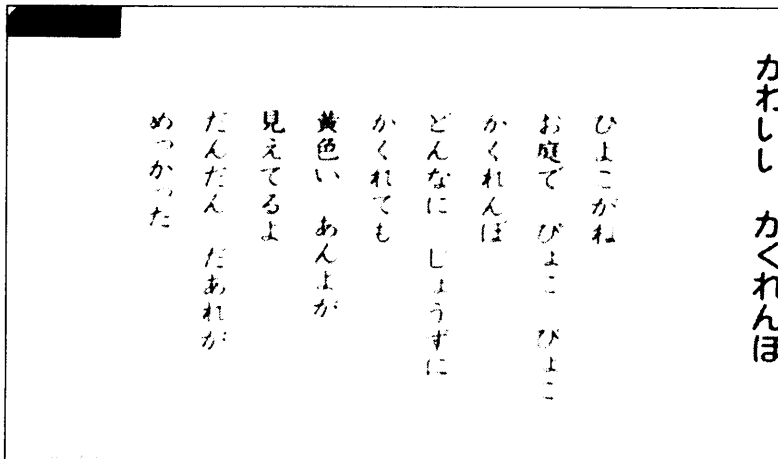 かわいい かくれんぼ
ひよこがね
お庭で ぴょこ ぴょこ
かくれんぼ
どんなに じょうずに
かくれても
黄色い あんよが
見えてるよ
だんだん だあれが
めっかった